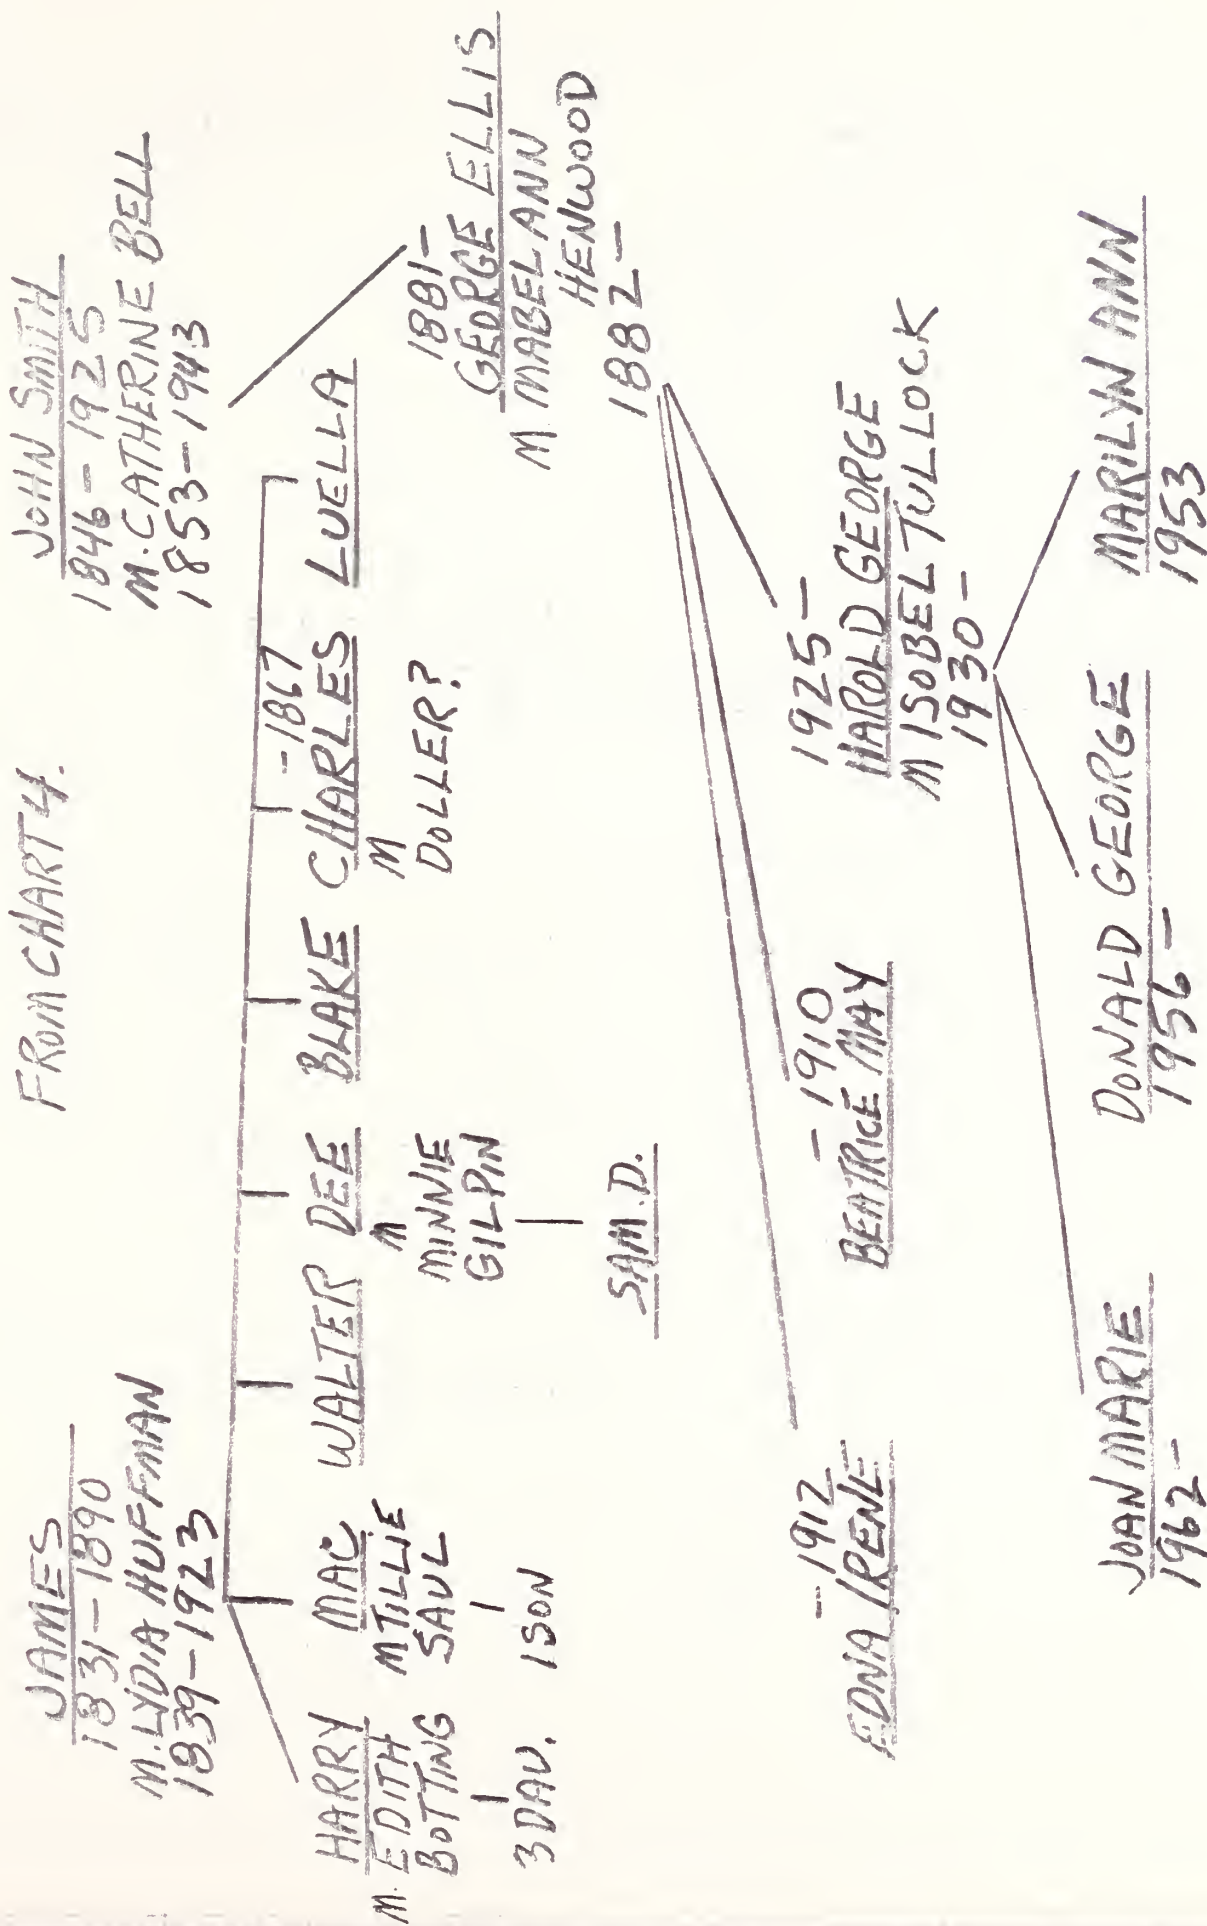 FROM CHART 4.
JAMES
1831-1890
M. LYDIA HUFFMAN
1839-1923
JOHN SMITH
1846-1925
M. CATHERINE BELL
1853-1943
HARRY
M. EDITH
BOTTING
3 DAU.
MAC
M TILLIE
SAUL
1 SON
WALTER
DEE
M
MINNIE
GILPIN
SAM. D.
BLAKE
--1867
CHARLES
M
DOLLER?
LUELLA
1881-
GEORGE ELLIS
M. MABEL ANN
HENWOOD
1882-
--1912
EDNA IRENE
-1910
BEATRICE MAY
1925-
HAROLD GEORGE
M ISOBEL TULLOCK
1930-
JOAN MARIE
1962-
DONALD GEORGE
1956-
MARILYN ANN
1953